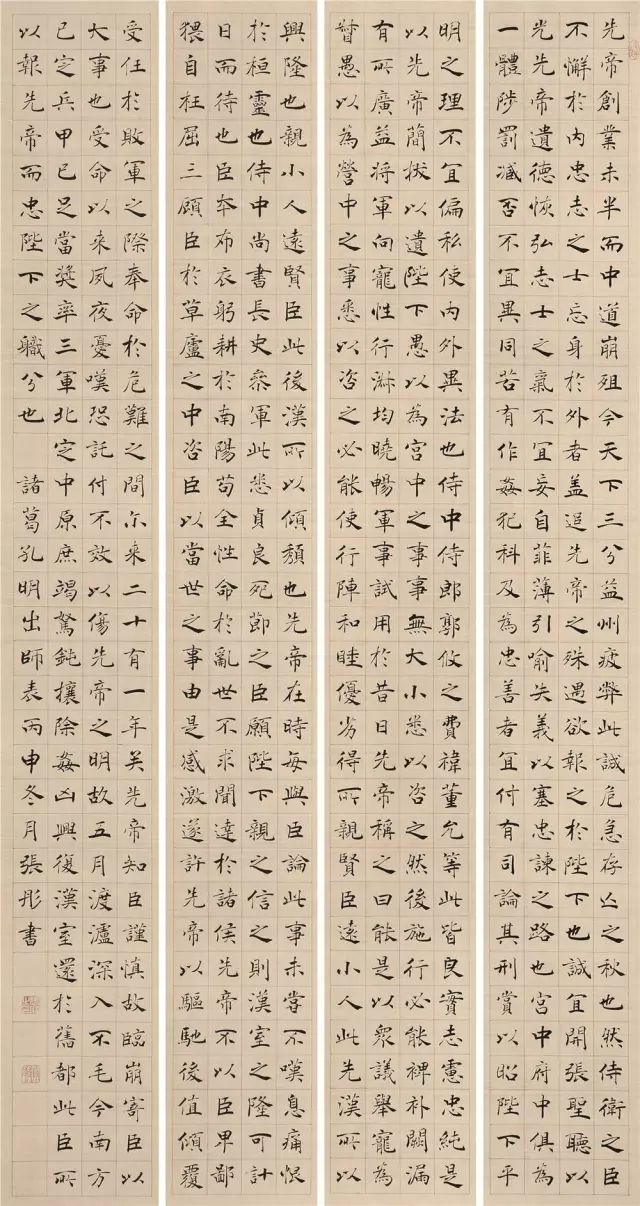 先帝創業未半而中道崩殂今天下三分益州疲弊此誠危急存亾之秋也然侍衛之臣
不懈於內忠志之士忘身於外者盖追先帝之殊遇欲報之於陛下也誠宜開張聖聽以
光先帝遺德恢弘志士之氣不宜妄自菲薄引喻失義以塞忠諫之路也宮中府中俱為
一體陟罰臧否不宜異同若有作姦犯科及為忠善者宜付有司論其刑賞以昭陛下平
明之理不宜偏私使內外異法也侍中侍郎郭攸之費禕董允等此皆良實志慮忠純是
以先帝簡拔以遺陛下愚以為宮中之事事無大小悉以咨之然後施行必能裨補闕漏
有所廣益將軍向寵性行淑均曉暢軍事試用於昔日先帝稱之曰能是以眾議舉寵為
督愚以為營中之事悉以咨之必能使行陣和睦優劣得所親賢臣遠小人此先漢所以
興隆也親小人遠賢臣此後漢所以傾頹也先帝在時每與臣論此事未嘗不嘆息痛恨
於桓靈也侍中尚書長史參軍此悉貞良死節之臣願陛下親之信之則漢室之隆可計
日而待也臣本布衣躬耕於南陽苟全性命於亂世不求聞達於諸侯先帝不以臣卑鄙
猥自枉屈三顧臣於草廬之中咨臣以當世之事由是感激遂許先帝以驅馳後值傾覆
受任於敗軍之際奉命於危難之間尓来二十有一年矣先帝知臣謹慎故臨崩寄臣以
大事也受命以来夙夜憂嘆恐託付不效以傷先帝之明故五月渡瀘深入不毛今南方
已定兵甲已足當獎率三軍北定中原庶竭駑鈍攘除姦凶興復漢室還於舊都此臣所
以報先帝而忠陛下之職分也 諸葛孔明出師表丙申冬月張彤書